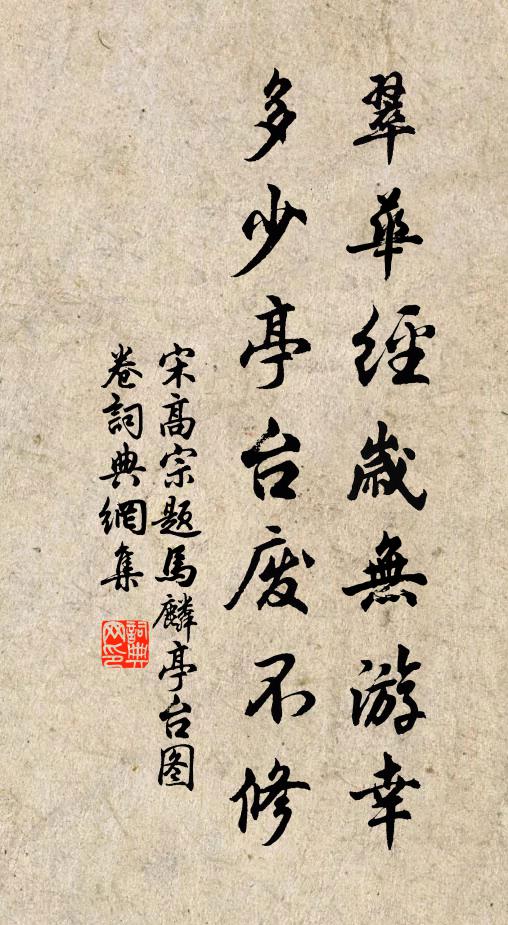 翠華經歲無游幸
多少亭台废不修
宋高宗題馬麟亭台图
卷詞典網集
詞典
网印